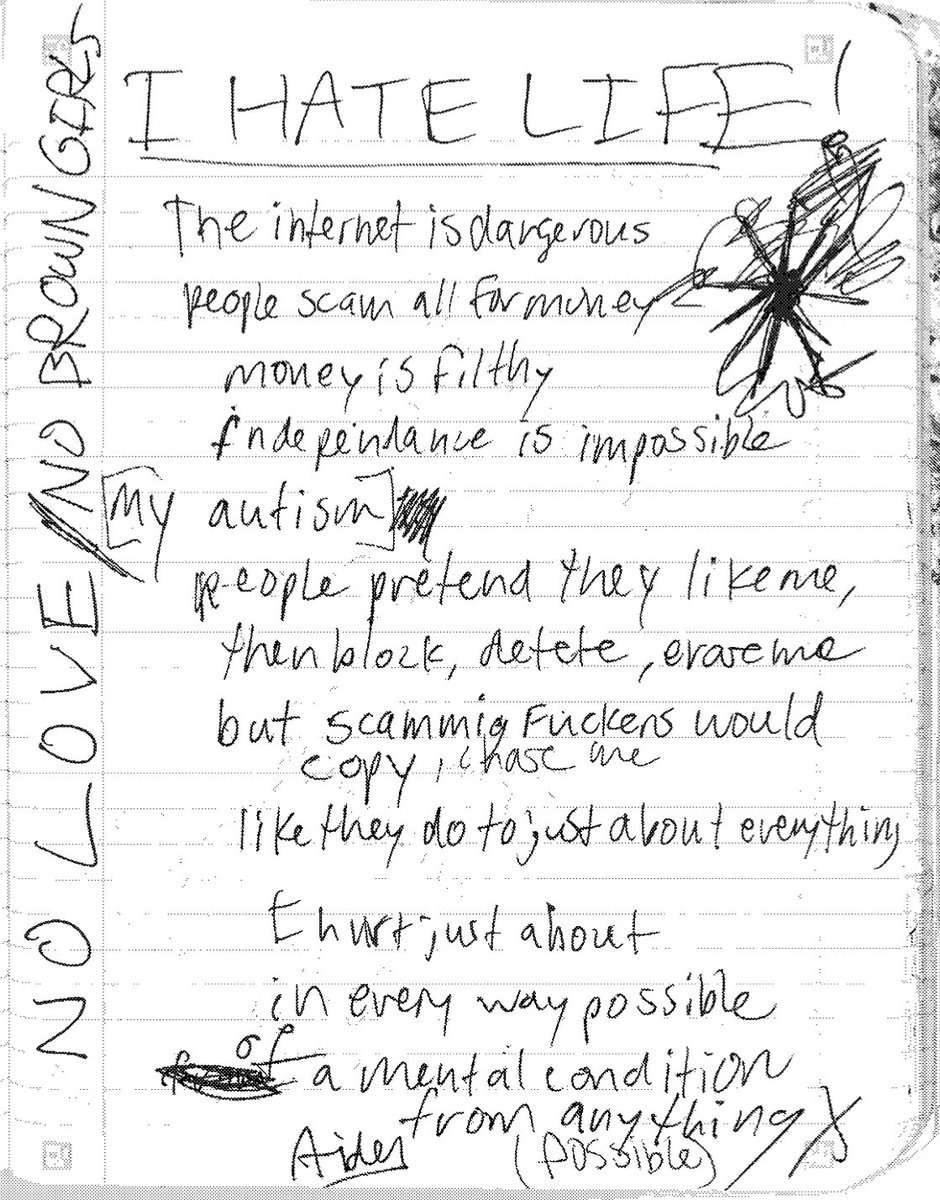 I HATE LIFE!
The internet is dangerous
people scam all for money
money is filthy
independance is impossible
[My autism]
people pretend they like me,
then block, detete, erase me
but scammig Fuckers would
copy, chase me
like they do to just about everything
I hurt just about
in every way possible
of a mental condition
from anything
(possible)
Aiden
NO LOVE/NO BROWN GIRLS